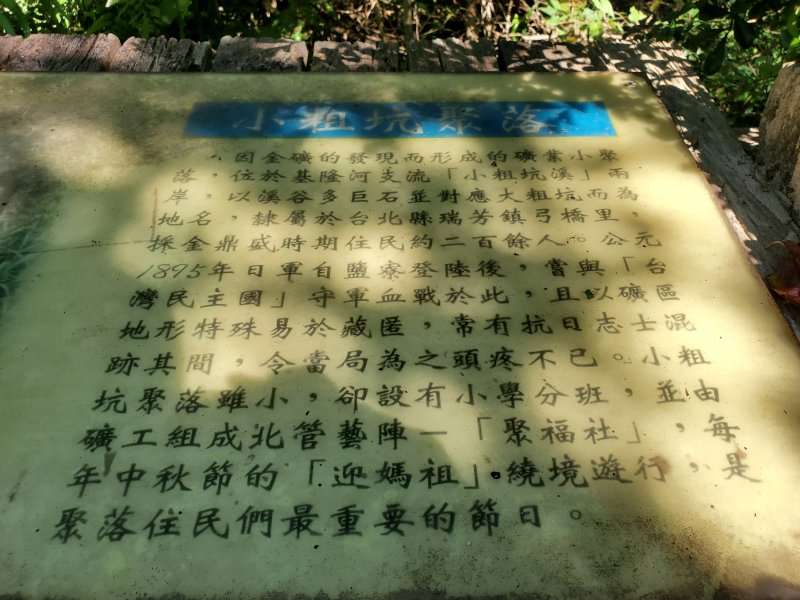 小粗坑聚落
因金礦的發現而形成的礦業小聚
落，位於基隆河支流「小粗坑溪」兩
岸，以溪谷多巨石並對應大粗坑而為
地名，隸屬於台北縣瑞芳鎮弓橋里，
採金鼎盛時期住民約二百餘人。公元
1895年日軍自鹽寮登陸後，嘗與「台
灣民主國」守軍血戰於此，且以礦區
地形特殊易於藏匿，常有抗日志士混
跡其間，令當局為之頭疼不已。小粗
坑聚落雖小，卻設有小學分班，並由
礦工組成北管藝陣—「聚福社」，每
年中秋節的「迎媽祖」繞境遊行，是
聚落住民們最重要的節日。